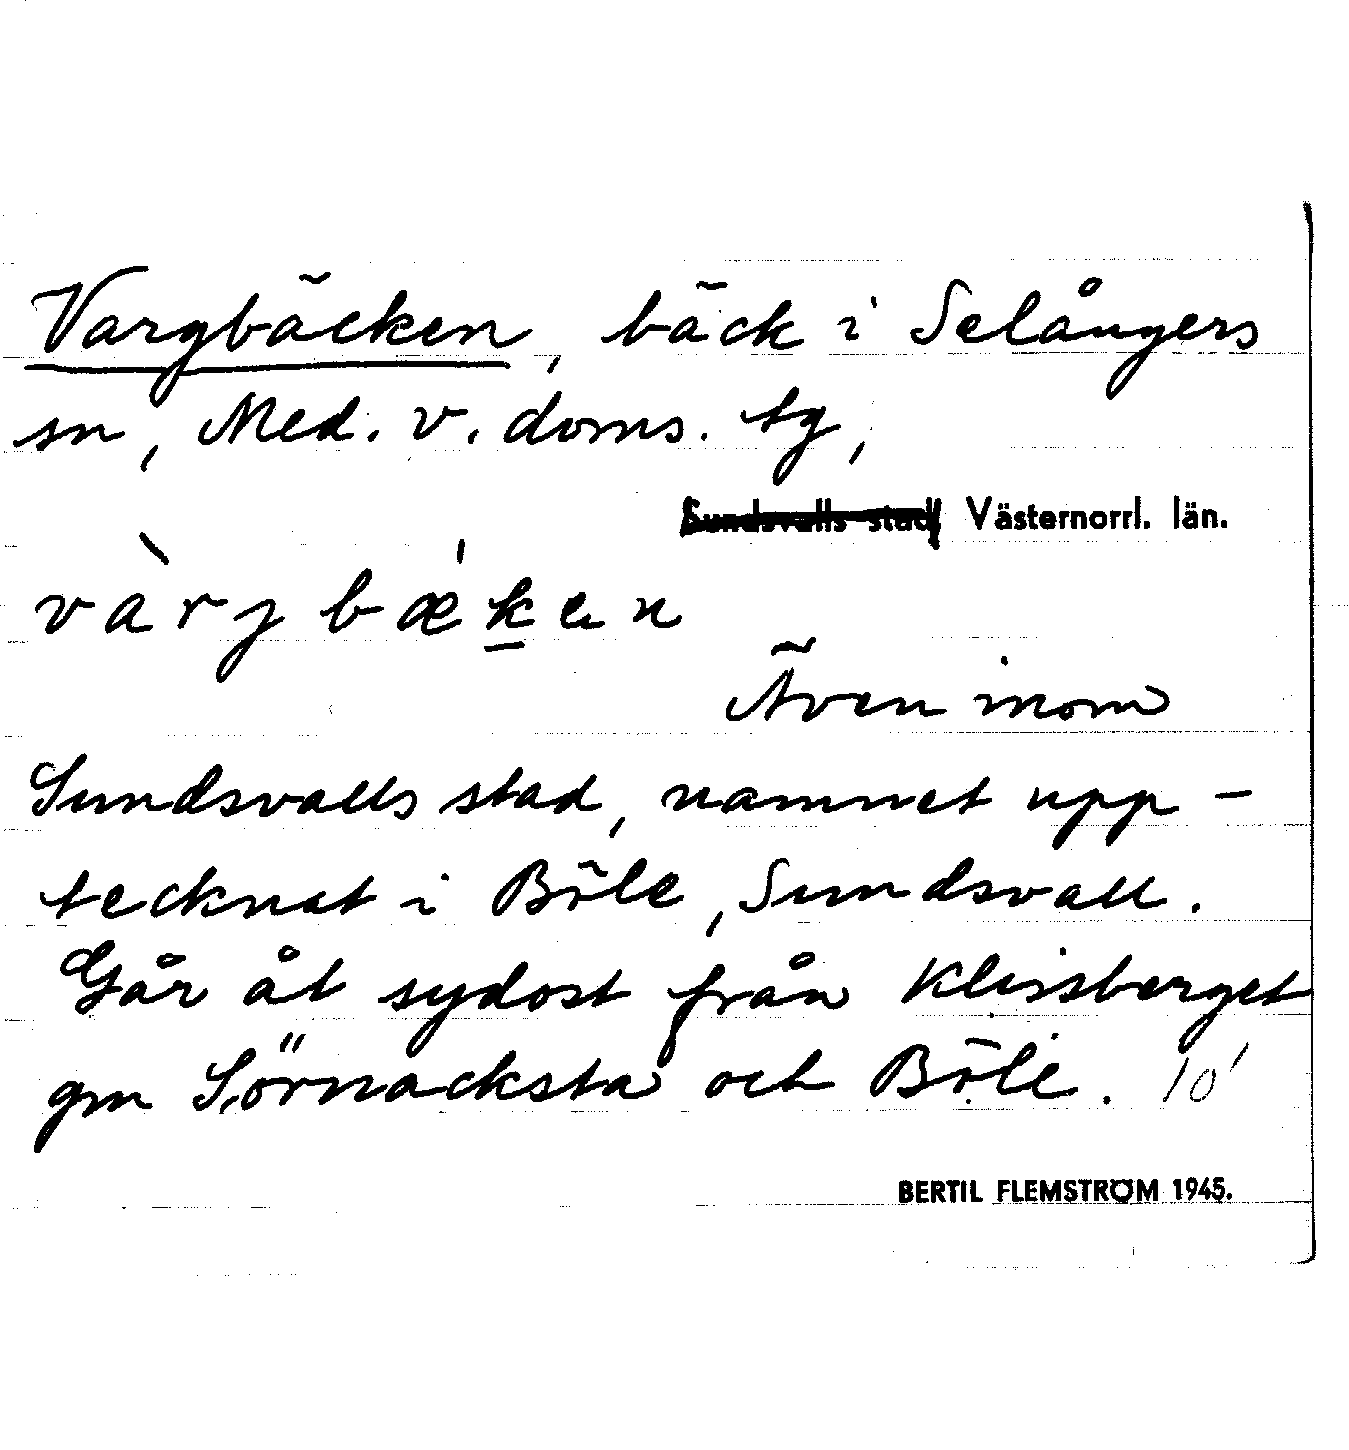 Vargbäcken, bäck i Selångers
sn, Med. v. doms. tg,
Sundsvalls stad, Västernorrl. län.
vàrjbǽken
Även inom
Sundsvalls stad, namnet upp-
tecknat i Böle, Sundsvall.
Går åt sydost från Klissberget
gm Sörnacksta och Böle. 10'
BERTIL FLEMSTRÖM 1945.